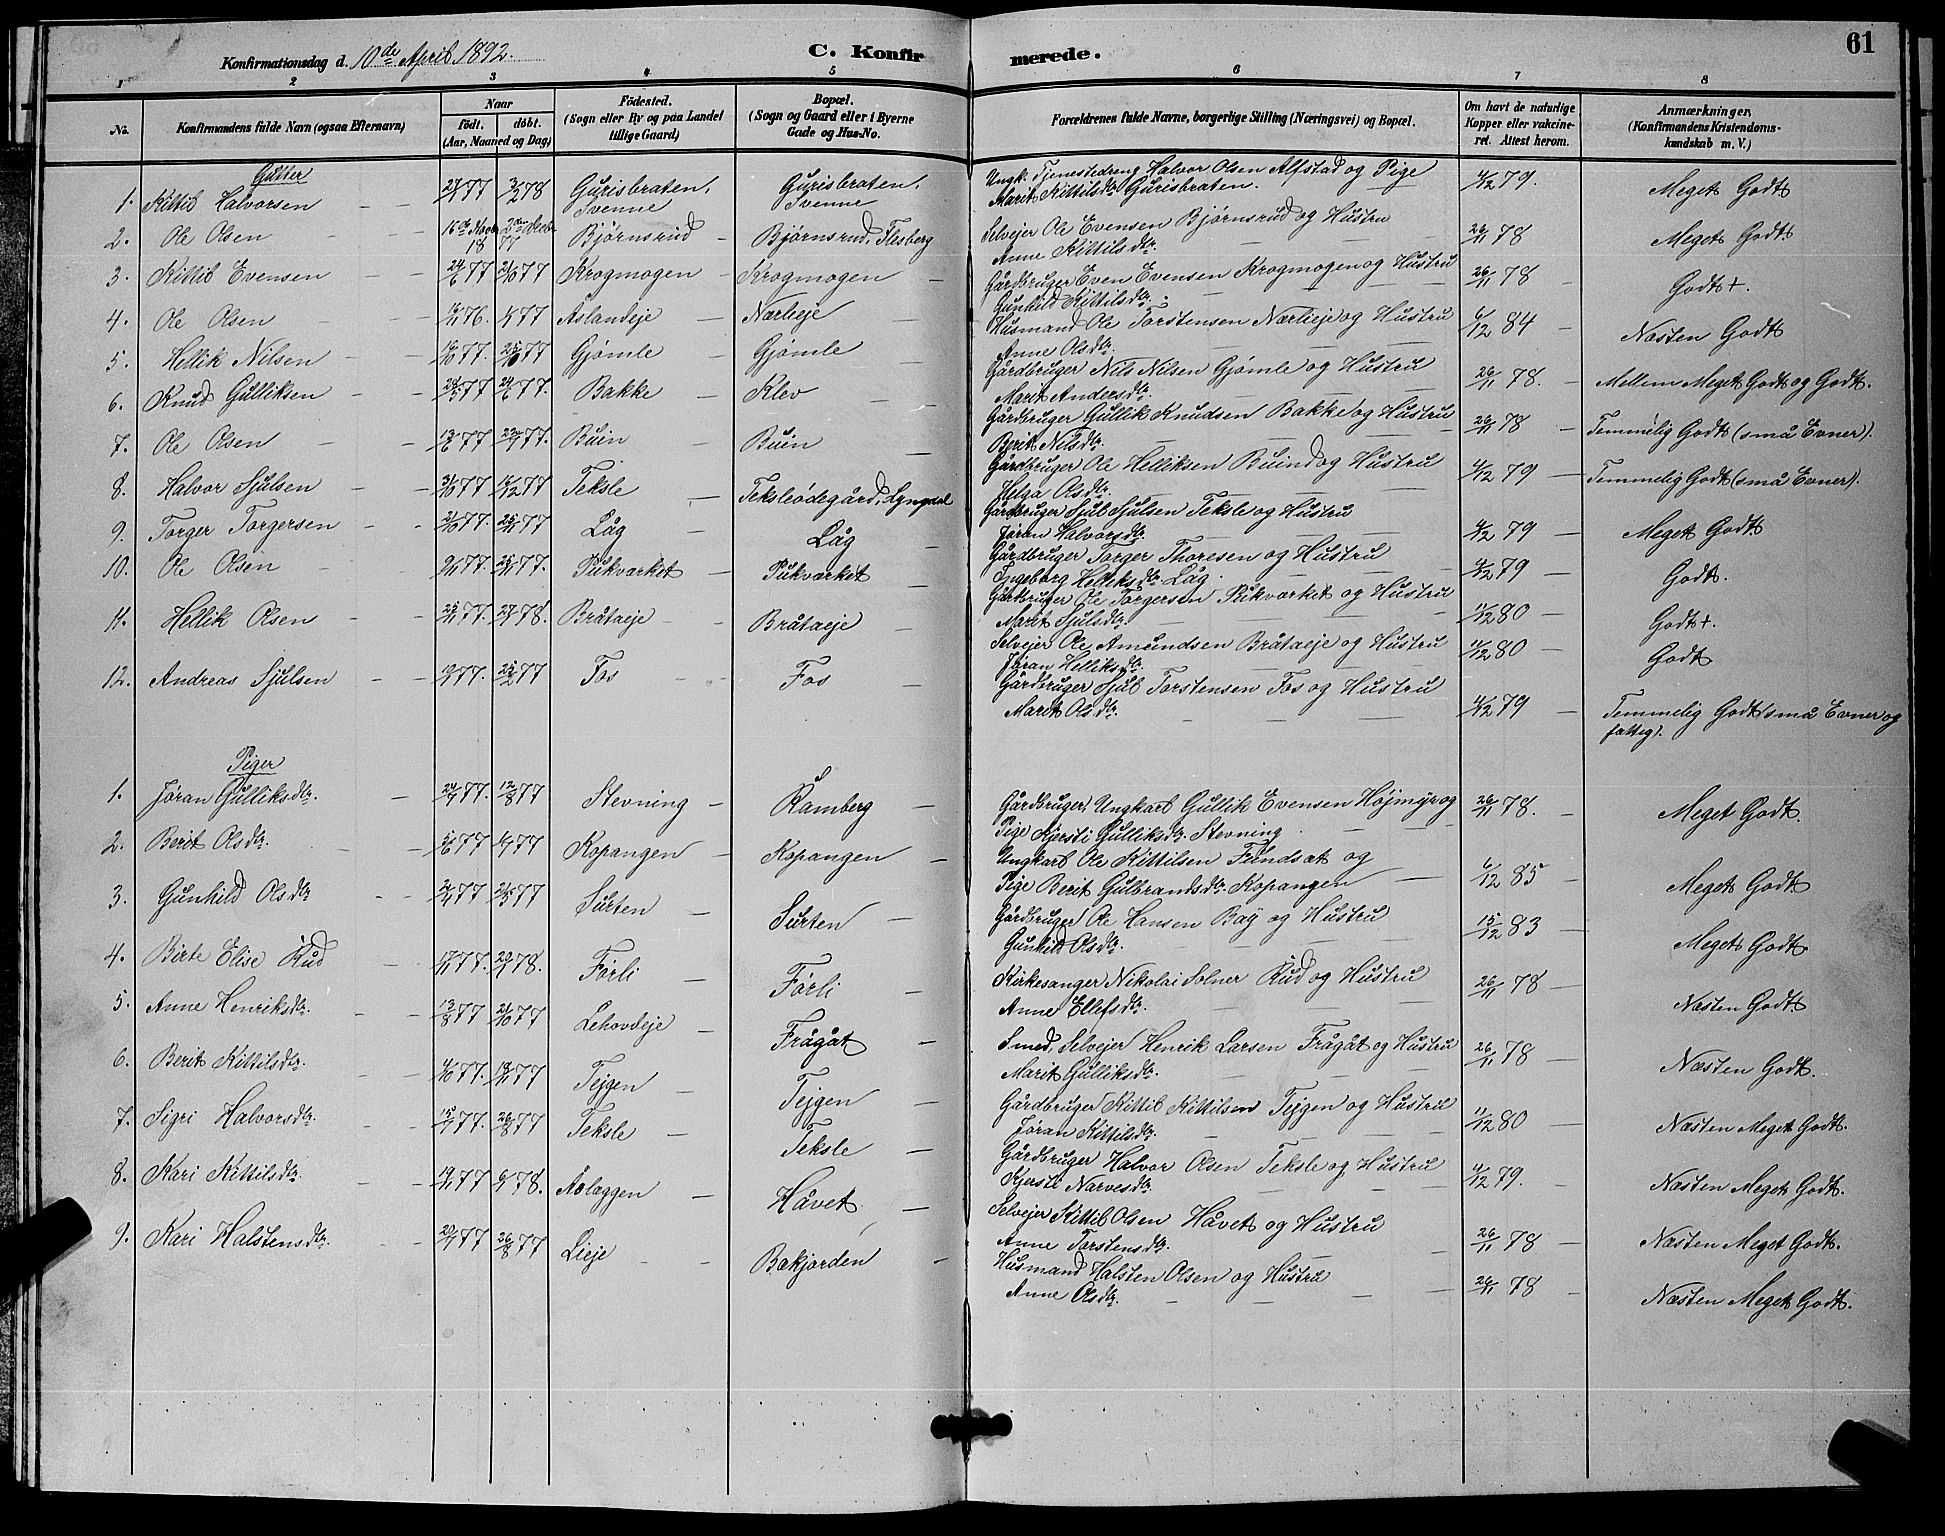 61
Konfirmationsdag d. 10de April 1892.
C. Konfirmerede.
1 2 3 4 5 6 7 8
No.
Konfirmandens fulde Navn (ogsaa Efternavn)
Naar
födt. döbt.
(Aar, Maaned og Dag)
Födested.
(Sogn eller By og paa Landet tillige Gaard)
Bopæl.
(Sogn og Gaard eller i Byerne Gade og Hus-No.
Forældrenes fulde Navne, borgerlige Stilling (Næringsvei) og Bopæl.
Om havt de naturlige Kopper eller vakcineret. Attest herom.
Anmærkninger.
(Konfirmandens Kristendomskundskab m. V.)
Gutter
1. Kittil Halvorsen 77 78 Gurisbraten, Svenne Gurisbraten, Svenne Ungk. Tjenestedreng Halvor Olsen Alfstad og Pige Marit Kittilsdtr. Gurisbraten. 4/12 79. Meget Godt
2. Ole Olsen 16de Novbr 18 77 Bjørnsrud Bjørnsrud, Flesberg Selvejer Ole Evensen Bjørnsrud og Hustru Anne Kittilsdtr. 26/11 78 Meget Godt
3. Kittil Evensen 24/6 77 77 Krogmogen Krogmogen Gårdbruger Even Evensen Krogmogen og Hustru Gunhild Kittilsdtr. 26/11 78 Godt +.
4. Ole Olsen 76. 77 Aslandeje Nærlieje Husmand Ole Torstensen Nærlieje og Hustru Anne Olsdtr. 6/12 84 Næsten Godt
5. Hellik Nilsen 77. 77 Gjømle Gjømle Gårdbruger Nils Nilsen Gjømle og Hustru Marit Andersdtr. 26/11 78. Mellem Meget Godt og Godt.
6. Knud Gulliksen 77 77. Bakke Klev Gårdbruger Gullik Knudsen Bakke og Hustru Berit Nilsdtr. 26/11 78 Temmelig Godt (små Evner).
7. Ole Olsen 77 77. Buin Buin Gårdbruger Ole Helliksen Buind og Hustru Helga Olsdtr. 4/12 79 Temmelig Godt (små Evner).
8. Halvor Sjulsen 77 77 Teksle Teksleødegård, Lyngdal Gårdbruger Sjul Sjulsen Teksle og Hustru Jøran Halvorsdtr. 4/12 79 Meget Godt
9. Torger Torgersen 77. 77 Låg Låg Gårdbruger Torger Thoresen og Hustru Ingeborg Helliksdtr. Låg. 4/12 79 Godt.
10. Ole Olsen 77. 77. Pukværket Pukværket Gårdbruger Ole Torgersen Pukværket og Hustru Marit Sjulsdtr. 11/12 80 Godt +.
11. Hellik Olsen 77. 78. Bråtaeje Bråtaeje Selvejer Ole Amundsen Bråtaeje og Hustru Jøran Helliksdtr. 11/12 80 Godt
12. Andreas Sjulsen 77. 25/2 77 Fos Fos Gårdbruger Sjul Torstensen Fos og Hustru Marit Olsdtr. 4/12 79 Temmelig Godt (små Evner og fattig).
Piger
1. Jøran Gulliksdtr. 77. 12/8 77 Stevning Ramberg Gårdbruger, Ungkarl Gullik Evensen Højmyr og Pige Kjersti Gulliksdtr. Stevning. 26/11 78. Meget Godt.
2. Berit Olsdtr. 77 77 Kopangen Kopangen Ungkarl Ole Kittilsen Fundsæt og Pige Berit Gulbrandsdtr. Kopangen 6/12 85 Meget Godt
3. Gunhild Olsdtr 77 77 Surten Surten Gårdbruger Ole Hansen Bay og Hustru Gunhild Olsdtr. 15/12 83 Meget Godt.
4. Birte Elise Rud 77. 78. Førli Førli Kirkesanger Nikolai Solner Rud og Hustru Anne Ellefsdtr. 26/11 78 Næsten Godt
5. Anne Henriksdtr. 13/8 77 21/10 77 Lehovdeje Frågåt Smed, Selvejer Henrik Larsen Frågåt og Hustru Marit Gulliksdtr. 26/11 78 Næsten Godt.
6. Berit Kittilsdtr. 77. 18/11 77 Tejgen Tejgen Gårdbruger Kittil Kittilsen Tejgen og Hustru Jøran Kittilsdtr. 11/12 80 Næsten Meget Godt.
7. Sigri Halvorsdtr. 77. 26/8 77 Teksle Teksle Gårdbruger Halvor Olsen Teksle og Hustru Kjersti Narvesdtr. 4/12 79. Næsten Meget Godt.
8. Kari Kittilsdtr. 77 78. Aslæggen Håvet Selvejer Kittil Olsen Håvet og Hustru Anne Torstensdtr. 26/11 78 Næsten Meget Godt.
9. Kari Halstensdtr. 77 26/8 77 Lieje Bakjorden Husmand Halsten Olsen og Hustru Anne Olsdtr. 26/11 78 Næsten Meget Godt.